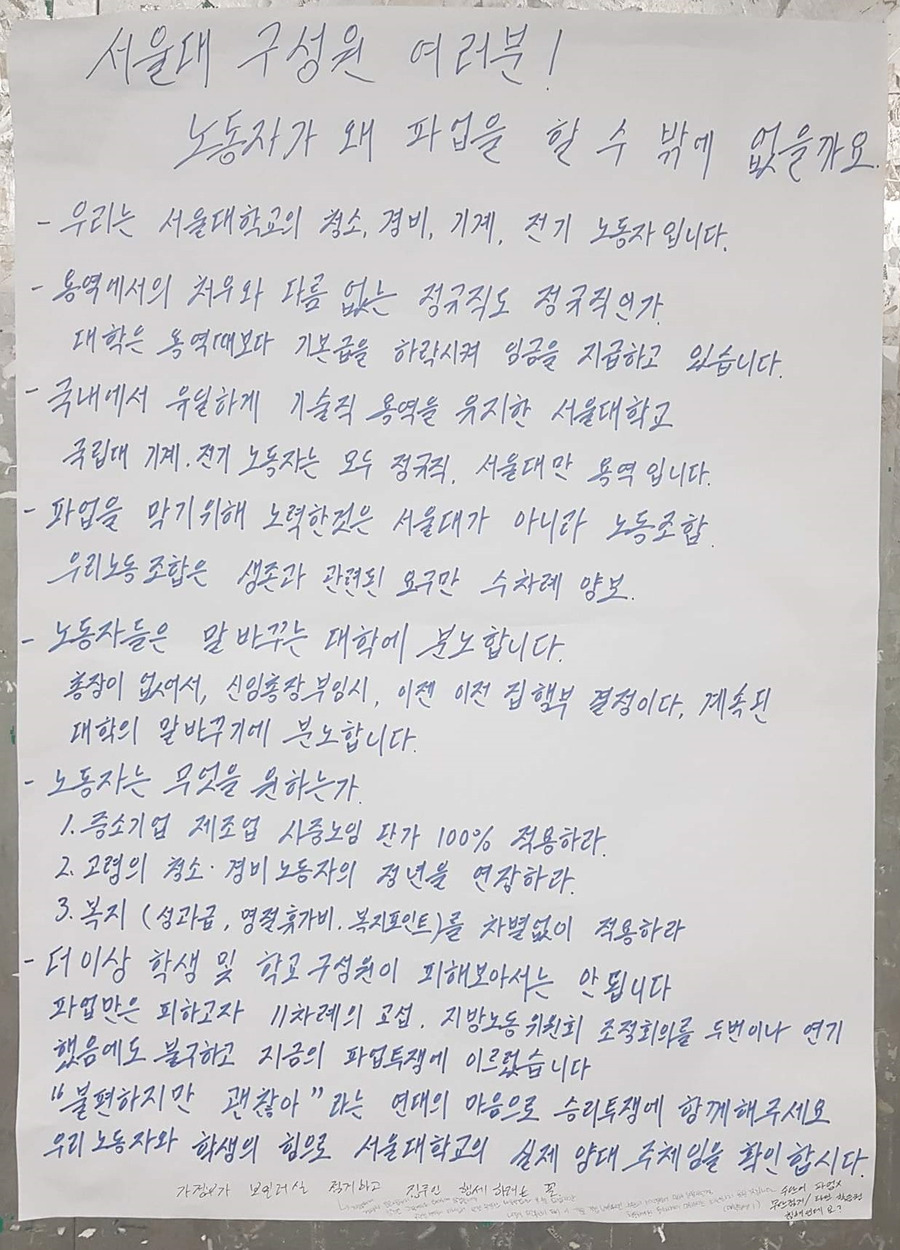 서울대 구성원 여러분!
노동자가 왜 파업을 할 수 밖에 없을까요.
- 우리는 서울대학교의 청소, 경비, 기계, 전기 노동자입니다.
- 용역에서의 처우와 다름 없는 정규직도 정규직인가.
대학은 용역때보다 기본급을 하락시켜 임금을 지급하고 있습니다.
- 국내에서 유일하게 기술직 용역을 유지한 서울대학교
국립대 기계.전기 노동자는 모두 정규직, 서울대만 용역입니다.
- 파업을 막기위해 노력한것은 서울대가 아니라 노동조합.
우리노동조합은 생존과 관련된 요구만 수차례 양보.
- 노동자들은 말바꾸는 대학에 분노합니다.
총장이 없어서, 신임총장부임시, 이젠 이전 집행부 결정이다, 계속된
대학의 말바꾸기에 분노합니다.
- 노동자는 무엇을 원하는가.
1. 중소기업 제조업 시중노임 단가 100% 적용하라.
2. 고령의 청소·경비노동자의 정년을 연장하라.
3. 복지 (성과급, 명절휴가비, 복지포인트)를 차별없이 적용하라
- 더이상 학생 및 학교구성원이 피해보아서는 안됩니다
파업만은 피하고자 11차례의 교섭, 지방노동위원회 조정회의를 두번이나 연기
했음에도 불구하고 지금의 파업투쟁에 이르렀습니다
"불편하지만 괜찮아"라는 연대의 마음으로 승리투쟁에 함께해주세요
우리 노동자와 학생의 힘으로 서울대학교의 실제 양대 주체임을 확인합시다.
집주인 행세 하려는 꼴